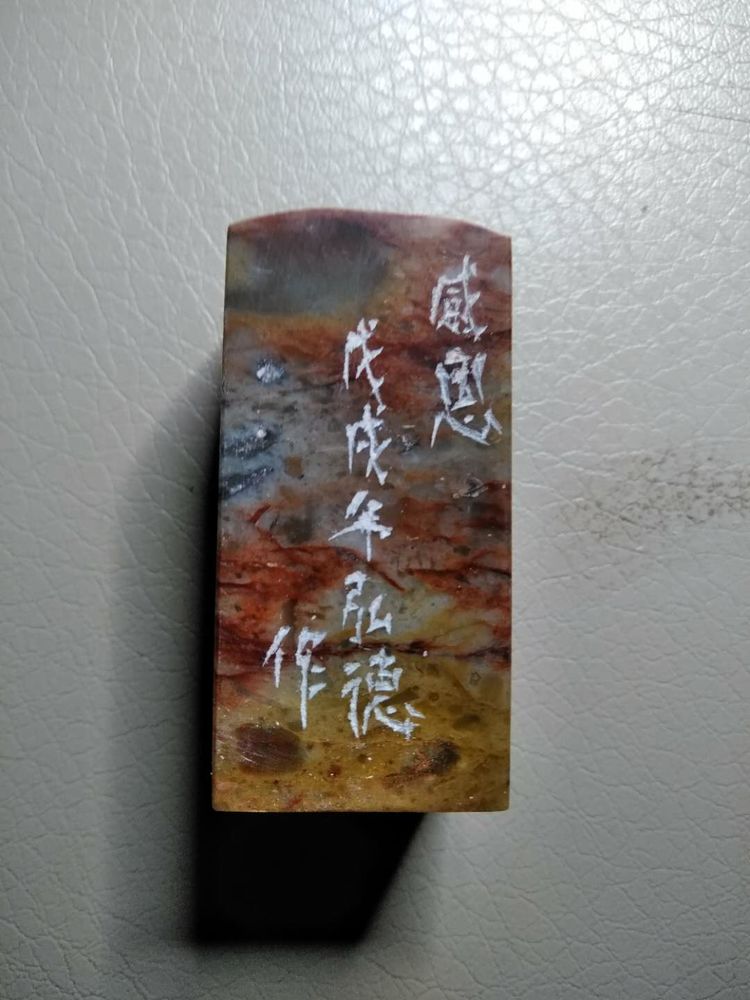 感恩
戊戌年弘德
作